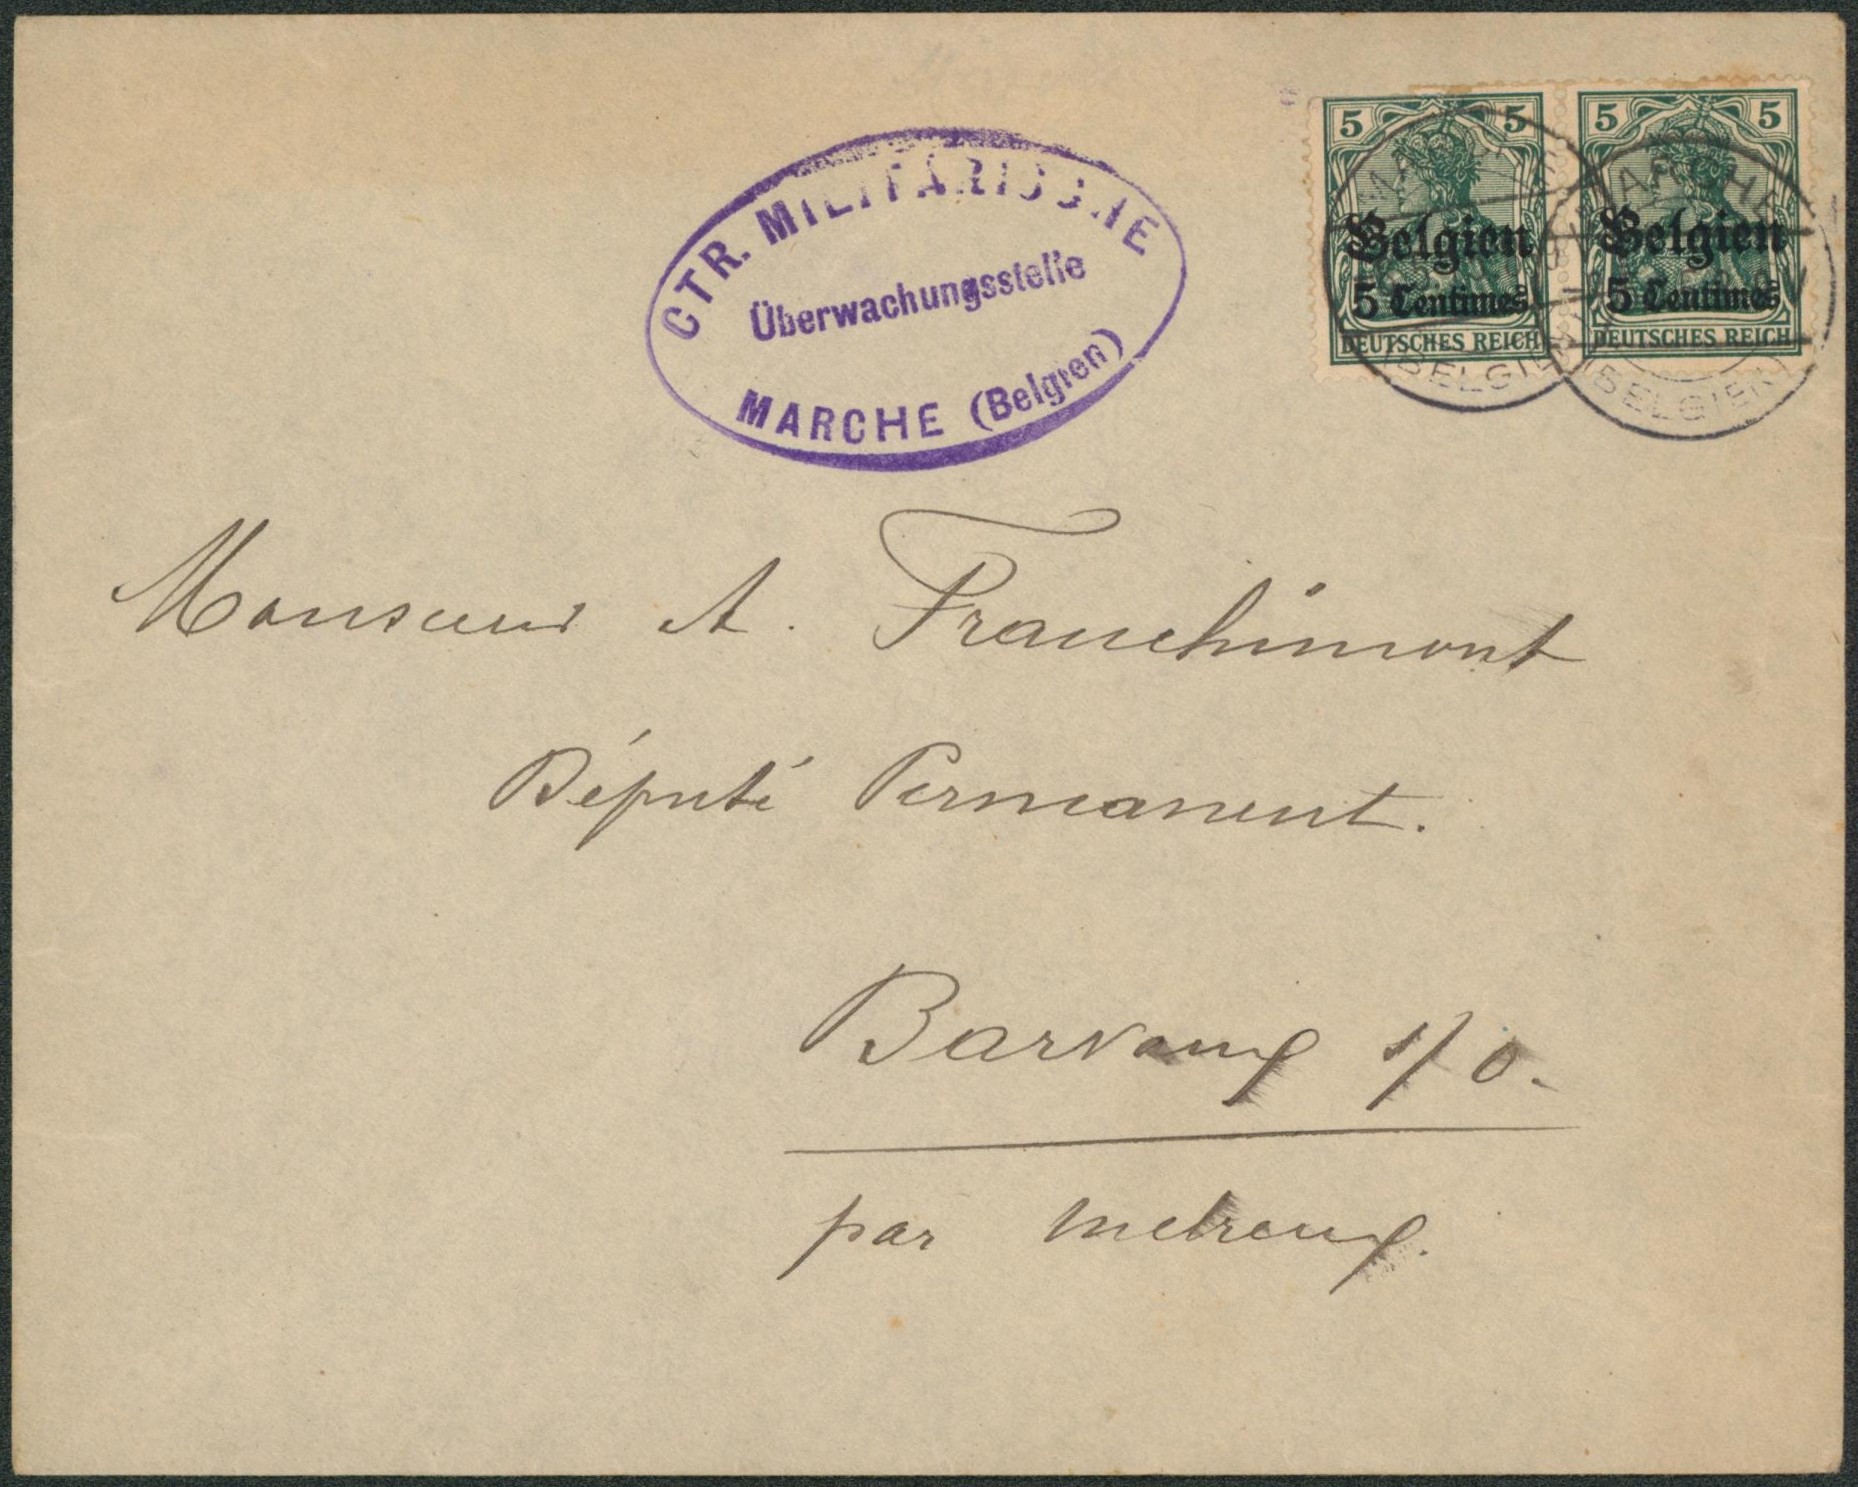 CTR. MILITÄRISCHE
Überwachungsstelle
MARCHE (Belgien)
5 5
Belgien
5 Centimes
DEUTSCHES REICH
5 5
Belgien
5 Centimes
DEUTSCHES REICH
MARCHE
(BELGIEN)
MARCHE
(BELGIEN)
Monsieur A. Franchimont
Député Permanent.
Barvaux s/O.
par Melreux.